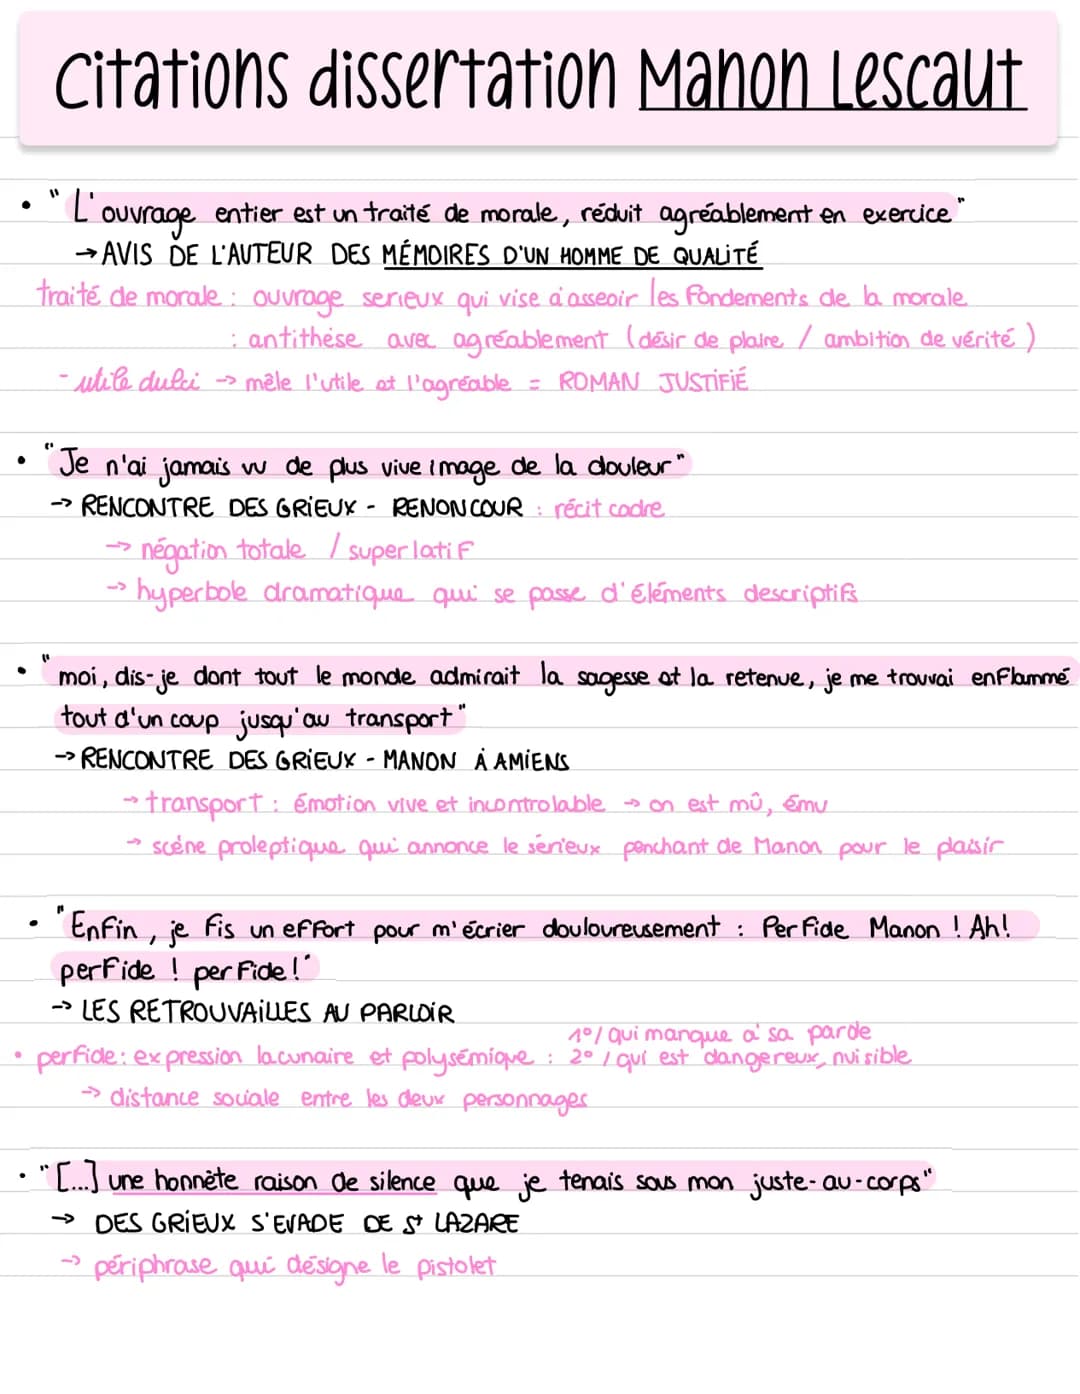 Citations dissertation Manon Lescaut
• "L'ouvrage entier est un traité de morale, réduit agréablement en exercice"
→ AVIS DE L'AUTEUR DES MÉMOIRES D'UN HOMME DE QUALITÉ
traité de morale : ouvrage serieux qui vise à asseoir les fondements de la morale
: antithèse avec agréablement (désir de plaire / ambition de vérité)
- utile dulci → mêle l'utile et l'agréable = ROMAN JUSTIFIÉ
• "Je n'ai jamais vu de plus vive image de la douleur"
→ RENCONTRE DES GRIEUX - RENONCOUR : récit cadre
→ négation totale / superlatif
→ hyperbole dramatique qui se passe d'éléments descriptifs
• "moi, dis-je dont tout le monde admirait la sagesse et la retenue, je me trouvai enflammé
tout d'un coup jusqu'au transport"
→ RENCONTRE DES GRIEUX - MANON À AMIENS
→ transport : émotion vive et incontrolable → on est mû, ému
→ scène proleptique qui annonce le sérieux penchant de Manon pour le plaisir
• "Enfin, je fis un effort pour m'écrier douloureusement : Perfide Manon ! Ah!
perfide ! perfide !"
→ LES RETROUVAILLES AU PARLOIR
1°/ qui manque à sa parde
• perfide : expression lacunaire et polysémique : 2° / qui est dangereux, nuisible
→ distance sociale entre les deux personnages
• "[...] une honnête raison de silence que je tenais sous mon juste-au-corps"
→ DES GRIEUX S'EVADE DE St LAZARE
→ périphrase qui désigne le pistolet